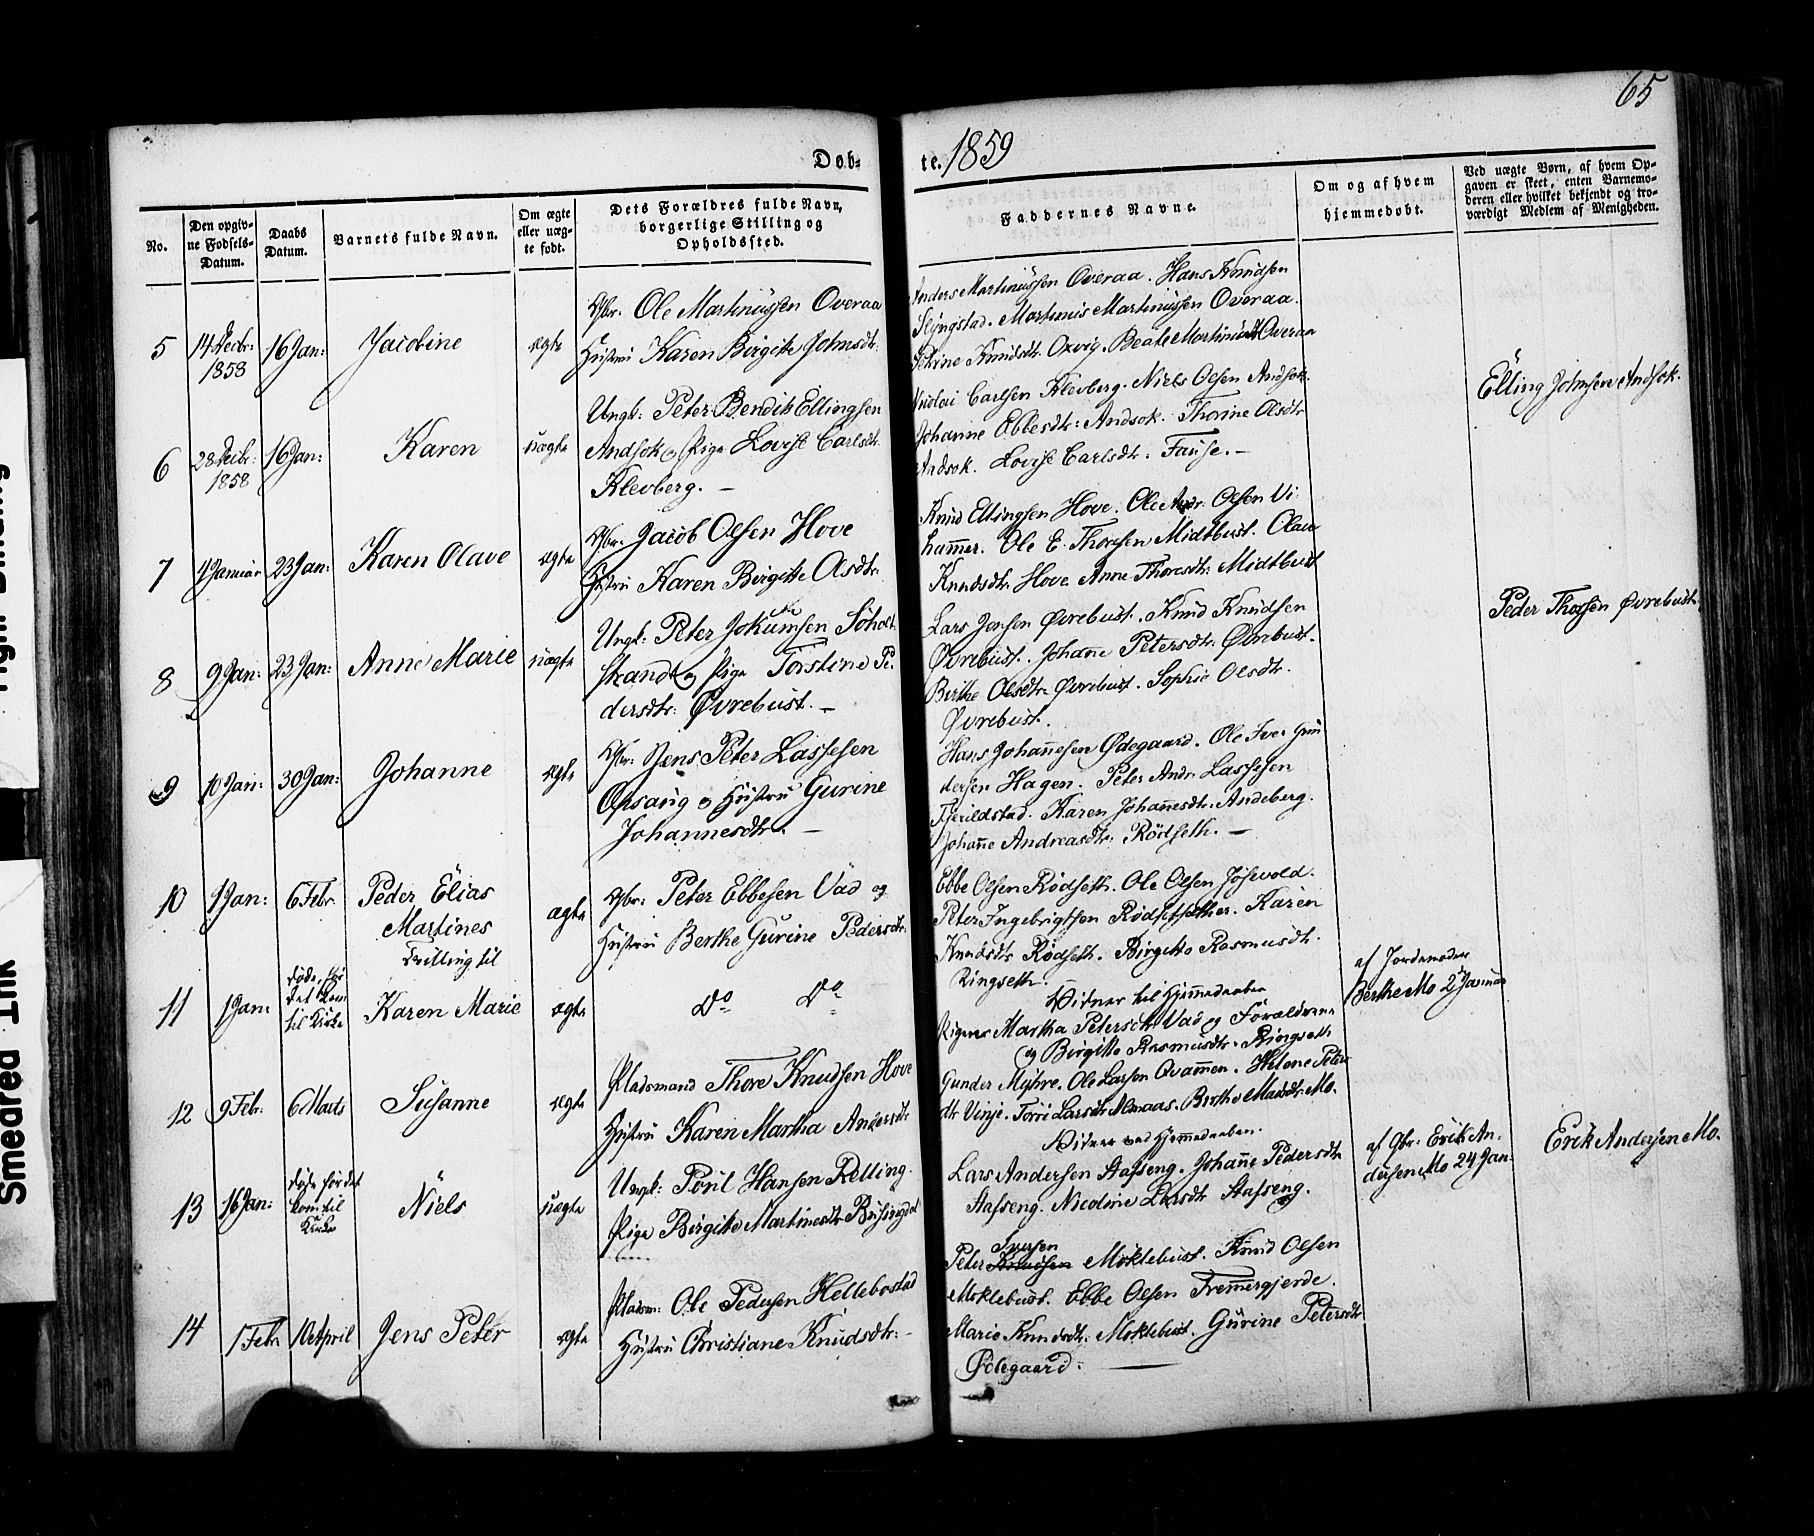 65
Døb-
te. 1859
No.
Den opgiv-
ne Fødsels-
Datum.
Daabs
Datum.
Barnets fulde Navn.
Om ægte
eller uæg-
te født.
Dets Forældres fulde Navn,
borgerlige Stilling og
Opholdssted.
Faddernes Navne.
Om og af hvem
hjemmedøbt.
Ved uægte Børn, af hvem Op-
gaven er skeet, enten Barnemo-
deren eller hvilket bekjendt og tro-
værdigt Medlem af Menigheden.
5
14 Decbr:
1858
16 Jan:
Jacobine
ægte
Gbr. Ole Martinussen Overaa
Hustru Karen Birgitte Johnsdtr.
Anders Martinussen Overaa. Hans Knudsen
Slyngstad. Martinus Martinussen Overaa.
Petrine Knudsdtr. Oxvig. Beate Martinusdtr Overaa
6
28 Decbr.
1858
16 Jan:
Karen
uægte
Ungk: Peter Bendik Ellingsen
Andsok og Pige Lovise Carlsdtr.
Klevberg. —
Nicolai Carlsen Klevberg. Niels Olsen Andsok.
Johanne Ebbesdtr: Andsok. Thorine Olsdtr
Andsok. Lovise Carlsdtr. Fause. —
Elling Johnsen Andsok.
7
4 Januar
23 Jan:
Karen Olave
ægte
Gbr. Jacob Olsen Hove
Hustru Karen Birgitte Olsdtr.
Knud Ellingsen Hove. Ole Andr. Olsen Vi-
hammer. Ole E. Thoresen Midtbust. Olave
Knudsdtr Hove Anne Thoresdtr: Midtbust
8
9 Jan:
23 Jan:
Anne Marie
uægte
Ungk: Peter Jokumsen Söholt
strand og Pige Torstine Pe-
dersdtr: Øvrebust. —
Lars Jensen Øvrebust. Knud Knudsen
Øvrebust. Johanne Petersdtr. Øvrebust.
Berthe Olsdtr. Øvrebust. Sophie Olsdtr.
Øvrebust.
Peder Thorsen Øvrebust.
9
10 Jan:
30 Jan:
Johanne
ægte
Gbr: Jens Peter Lassesen
Opsaug og Hustru Gurine
Johannesdtr. —
Hans Johannesen Ødegaard. Ole Iver Gun-
dersen Hagen. Peter Andr. Lassesen
Fjeildstad. Karen Johannesdtr: Andeberg.
Johanne Andreasdtr: Rödseth. —
10
1 Jan:
6 Febr.
Peder Elias
Martines
Tvilling til
ægte
Gbr: Peter Ebbesen Vad og
Hustru Berthe Gurine Pedersdtr.
Ebbe Olsen Rödseth. Ole Olsen Jösvold.
Peter Ingebrigtsen Rödsethsæther. Karen
Knudsdtr Rödseth. Birgitte Rasmusdtr.
Ringseth.
11
1 Jan:
døde, för
det kom
til Kirke
Karen Marie
ægte
Do Do
Vidner til Hjemmedaaben
Pigerne Martha Petersdtr Vad og Forældrene
og Birgitte Rasmusdtr. Ringseth
af Jordemoder
Berthe Mo 2 Januar
12
9 Febr.
6 Marts
Susanne
ægte
Pladsmand Thore Knudsen Hove
Hustru Karen Martha Andersdtr
Gunder Myhre. Ole Larsen Qvammen. Helene Peters
dtr Vinje. Torri Larsdtr Almaas. Berthe Madsdtr Mo.
13
16 Jan:
døde för det
kom til
Kirke
Niels
uægte
Ungk: Poril Hansen Relling.
Pige Birgitte Martinesdtr Brusingdal
Vidner ved Hjemmedaaben.
Lars Andersen Stafseng. Johanne Pedersdtr
Stafseng. Nicoline Larsdtr Stafseng.
af Gbr: Erik An-
dersen Mo 24 Jan:
Erik Andersen Mo.
14
1 Febr.
10 April
Jens Peter
ægte
Pladsm: Ole Pedersen Hellebostad
Hustru Christiane Knudsdtr: —
Iversen
Peter Knudsen Moklebust. Knud Olsen
Moklebust. Ebbe Olsen Fremmergjerde.
Marie Knudsdtr: Moklebust. Gurine Petersdtr
Ødegaard. —
Smedred Ink